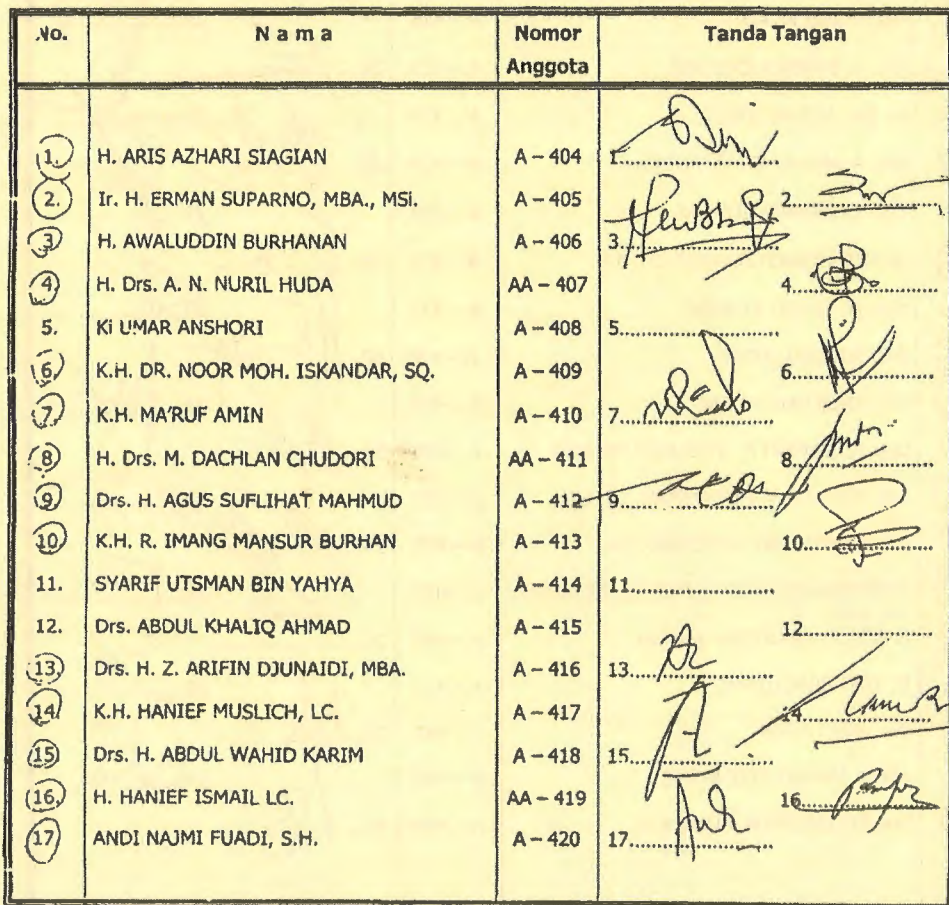 No. Nama Nomor Anggota Tanda Tangan
1. H. ARIS AZHARI SIAGIAN A – 404 1.
2. Ir. H. ERMAN SUPARNO, MBA., MSi. A – 405 2.
3. H. AWALUDDIN BURHANAN A – 406 3.
4. H. Drs. A. N. NURIL HUDA AA – 407 4.
5. Ki UMAR ANSHORI A – 408 5.
6. K.H. DR. NOOR MOH. ISKANDAR, SQ. A – 409 6.
7. K.H. MA'RUF AMIN A – 410 7.
8. H. Drs. M. DACHLAN CHUDORI AA – 411 8.
9. Drs. H. AGUS SUFLIHAT MAHMUD A – 412 9.
10. K.H. R. IMANG MANSUR BURHAN A – 413 10.
11. SYARIF UTSMAN BIN YAHYA A – 414 11.
12. Drs. ABDUL KHALIQ AHMAD A – 415 12.
13. Drs. H. Z. ARIFIN DJUNAIDI, MBA. A – 416 13.
14. K.H. HANIEF MUSLICH, LC. A – 417 14.
15. Drs. H. ABDUL WAHID KARIM A – 418 15.
16. H. HANIEF ISMAIL LC. AA – 419 16.
17. ANDI NAJMI FUADI, S.H. A – 420 17.